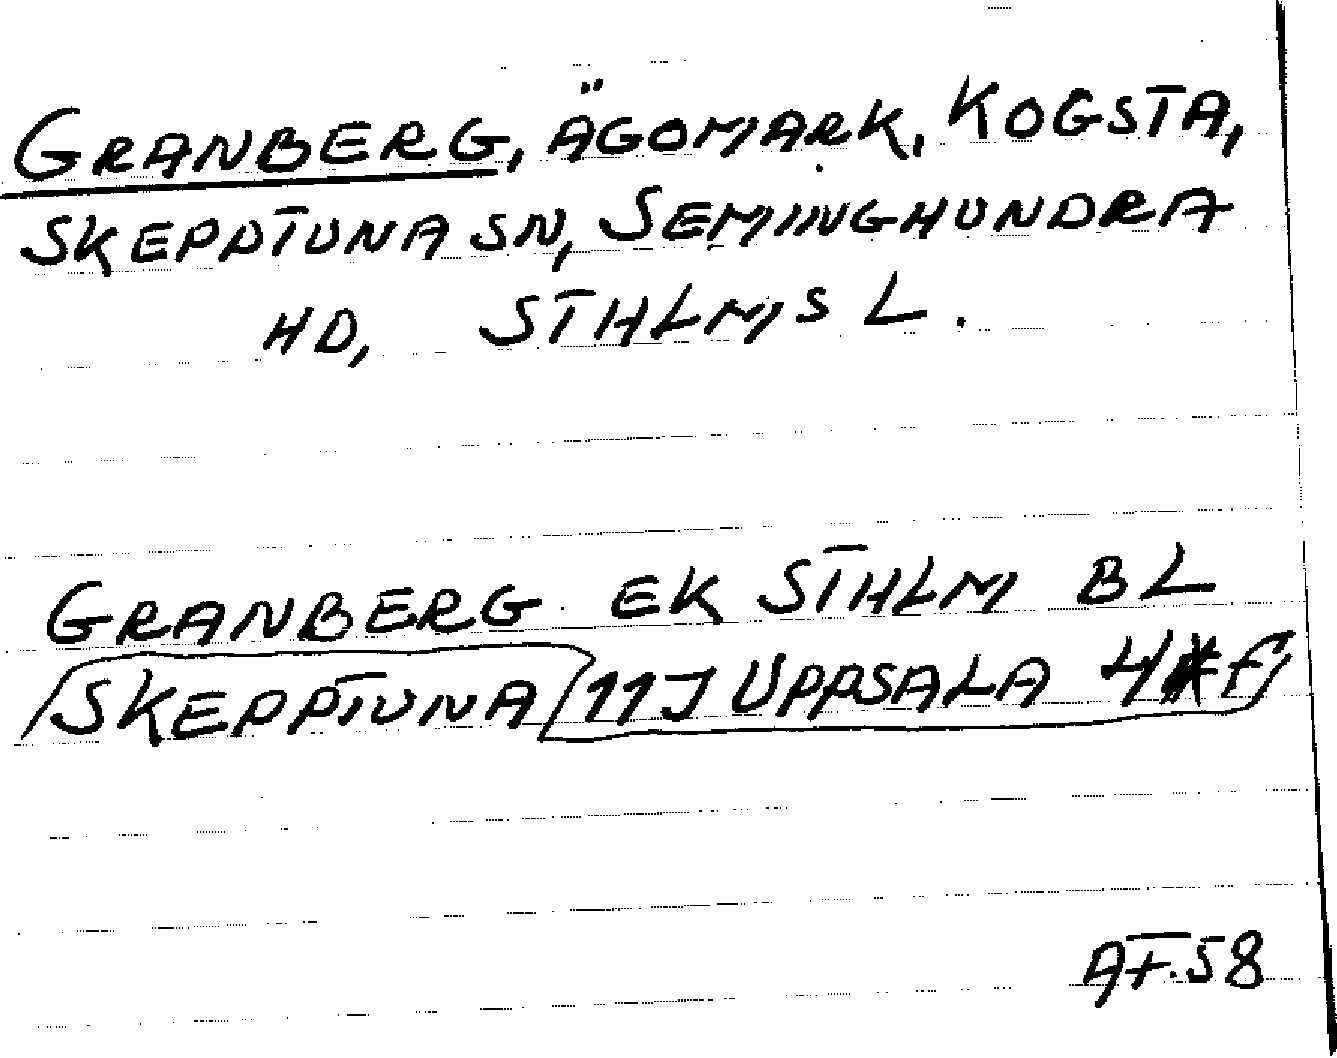 GRANBERG, ÄGOMARK, KOGSTA,
SKEPPTUNA SN, SEMINGHUNDRA
HD, STHLMS L.
GRANBERG EK STHLM BL
SKEPPTUNA 11J UPPSALA 4 F
AF.58